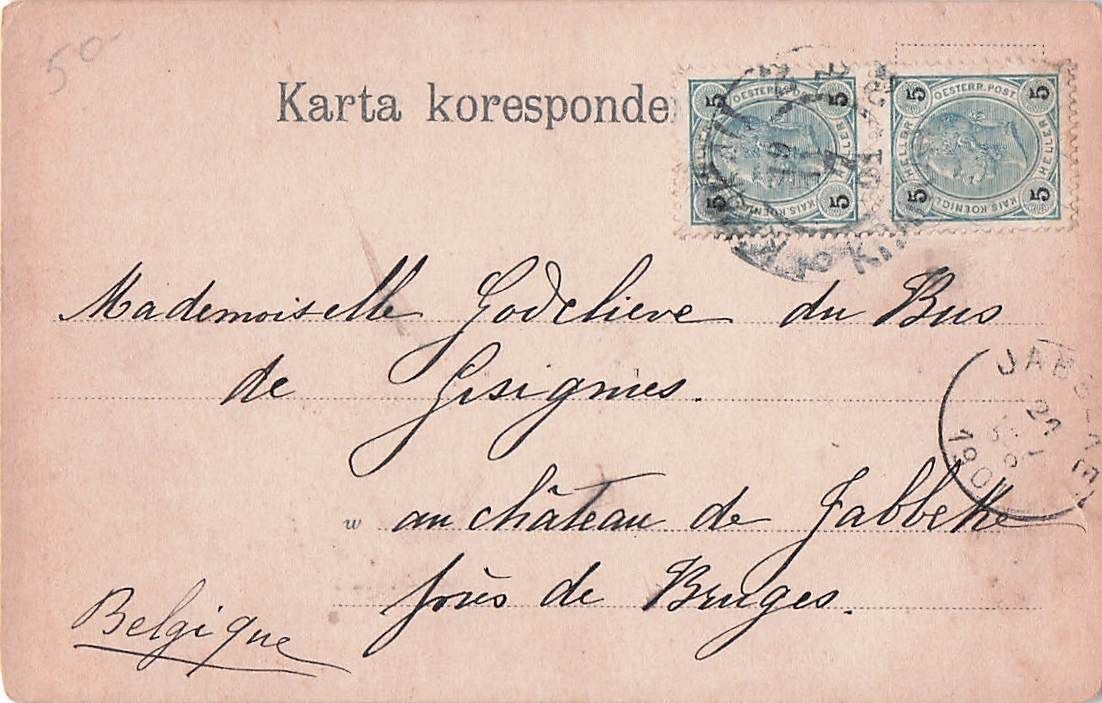 50-
Karta koresponde
5 5 5 5
OESTERR. POST.
HELLER
KAIS. KOENIGL
5 5 5 5
OESTERR. POST.
HELLER HELLER
KAIS. KOENIGL
Mademoiselle Godelieve du Bus
de Gisignies.
w au château de Jabbeke
près de Bruges.
Belgique